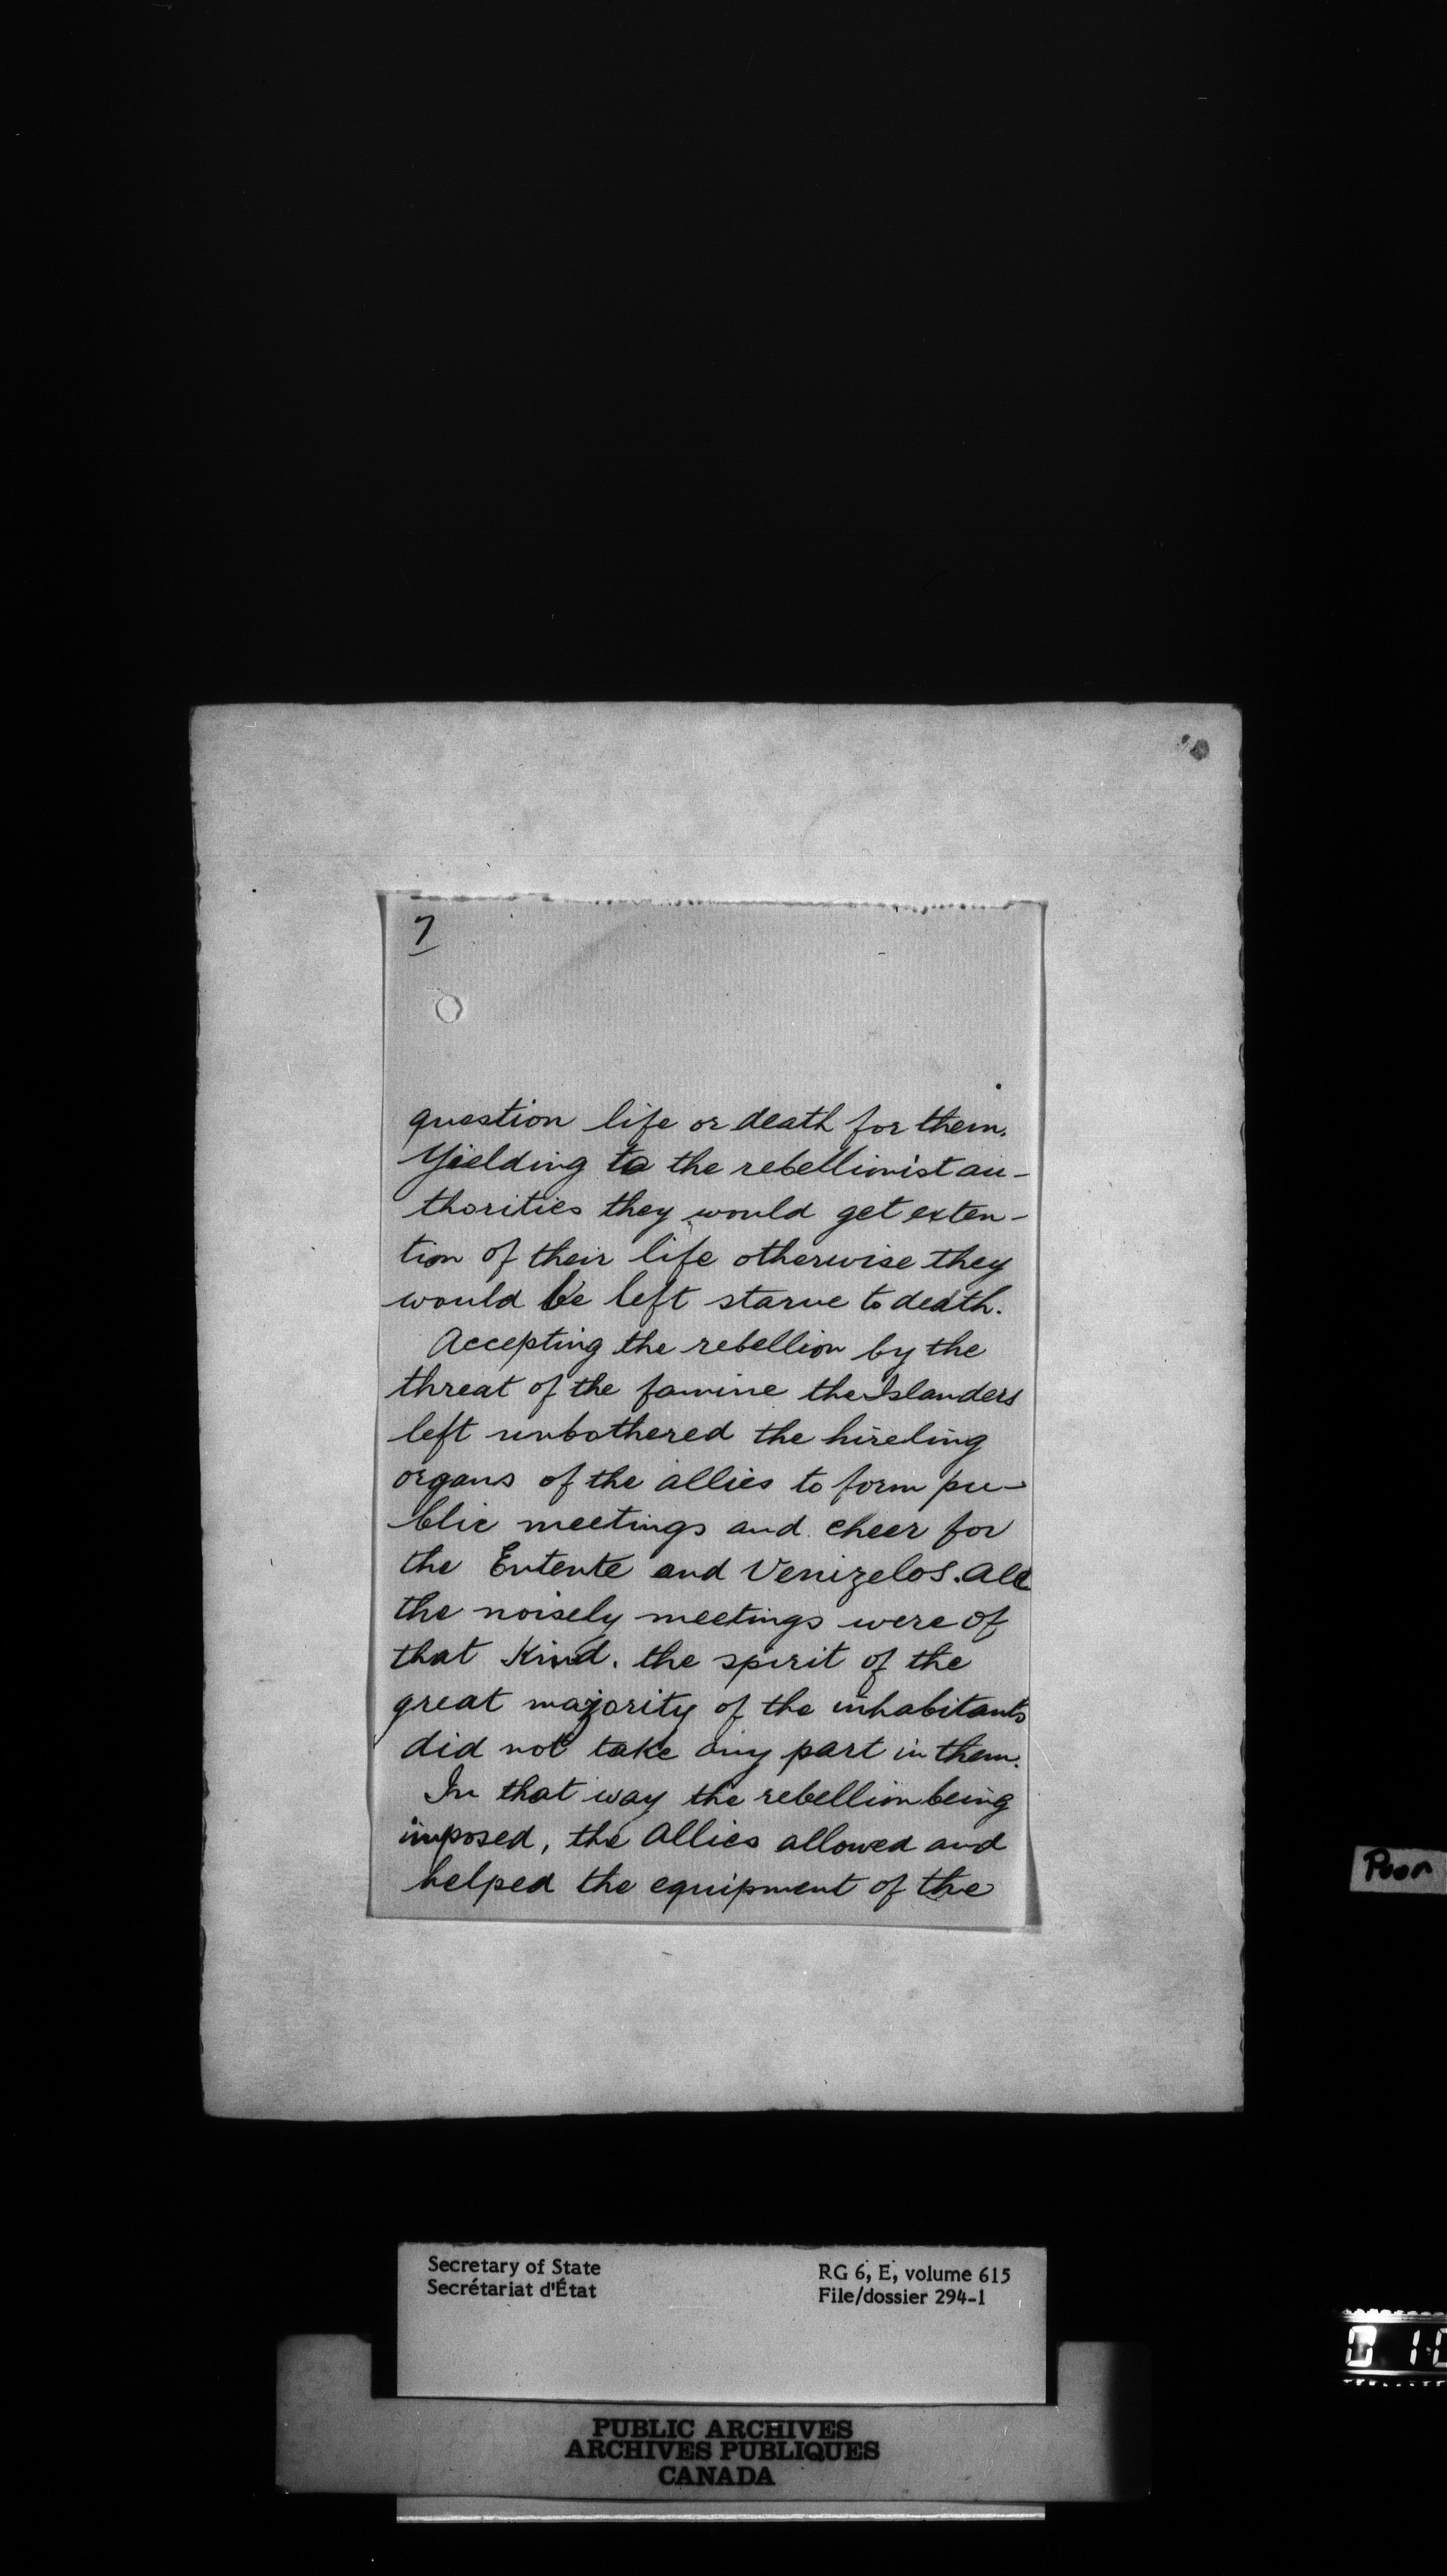 7
question life or death for them.
Yielding to the rebellionist au-
thorities they would get exten-
tion of their life otherwise they
would be left starve to death.
Accepting the rebellion by the
threat of the famine the Islanders
left unbothered the hireling
organs of the allies to form pu-
blic meetings and cheer for
the Entente and Venizelos. All
the noisely meetings were of
that Kind. the spirit of the
great majority of the inhabitants
did not take any part in them.
In that way the rebellion being
imposed, the Allies allowed and
helped the equipment of the
Poor
Secretary of State
Secrétariat d'État
RG 6, E, volume 615
File/dossier 294-1
PUBLIC ARCHIVES
ARCHIVES PUBLIQUES
CANADA